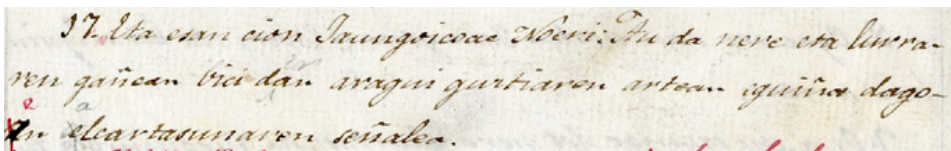 17. Eta esan cion Jaungoicoac Noeri: Au da nere eta lurra-
ren gañean bici dan aragui guztiaren artean eguiña dago-
en elcartasunaren señalea.